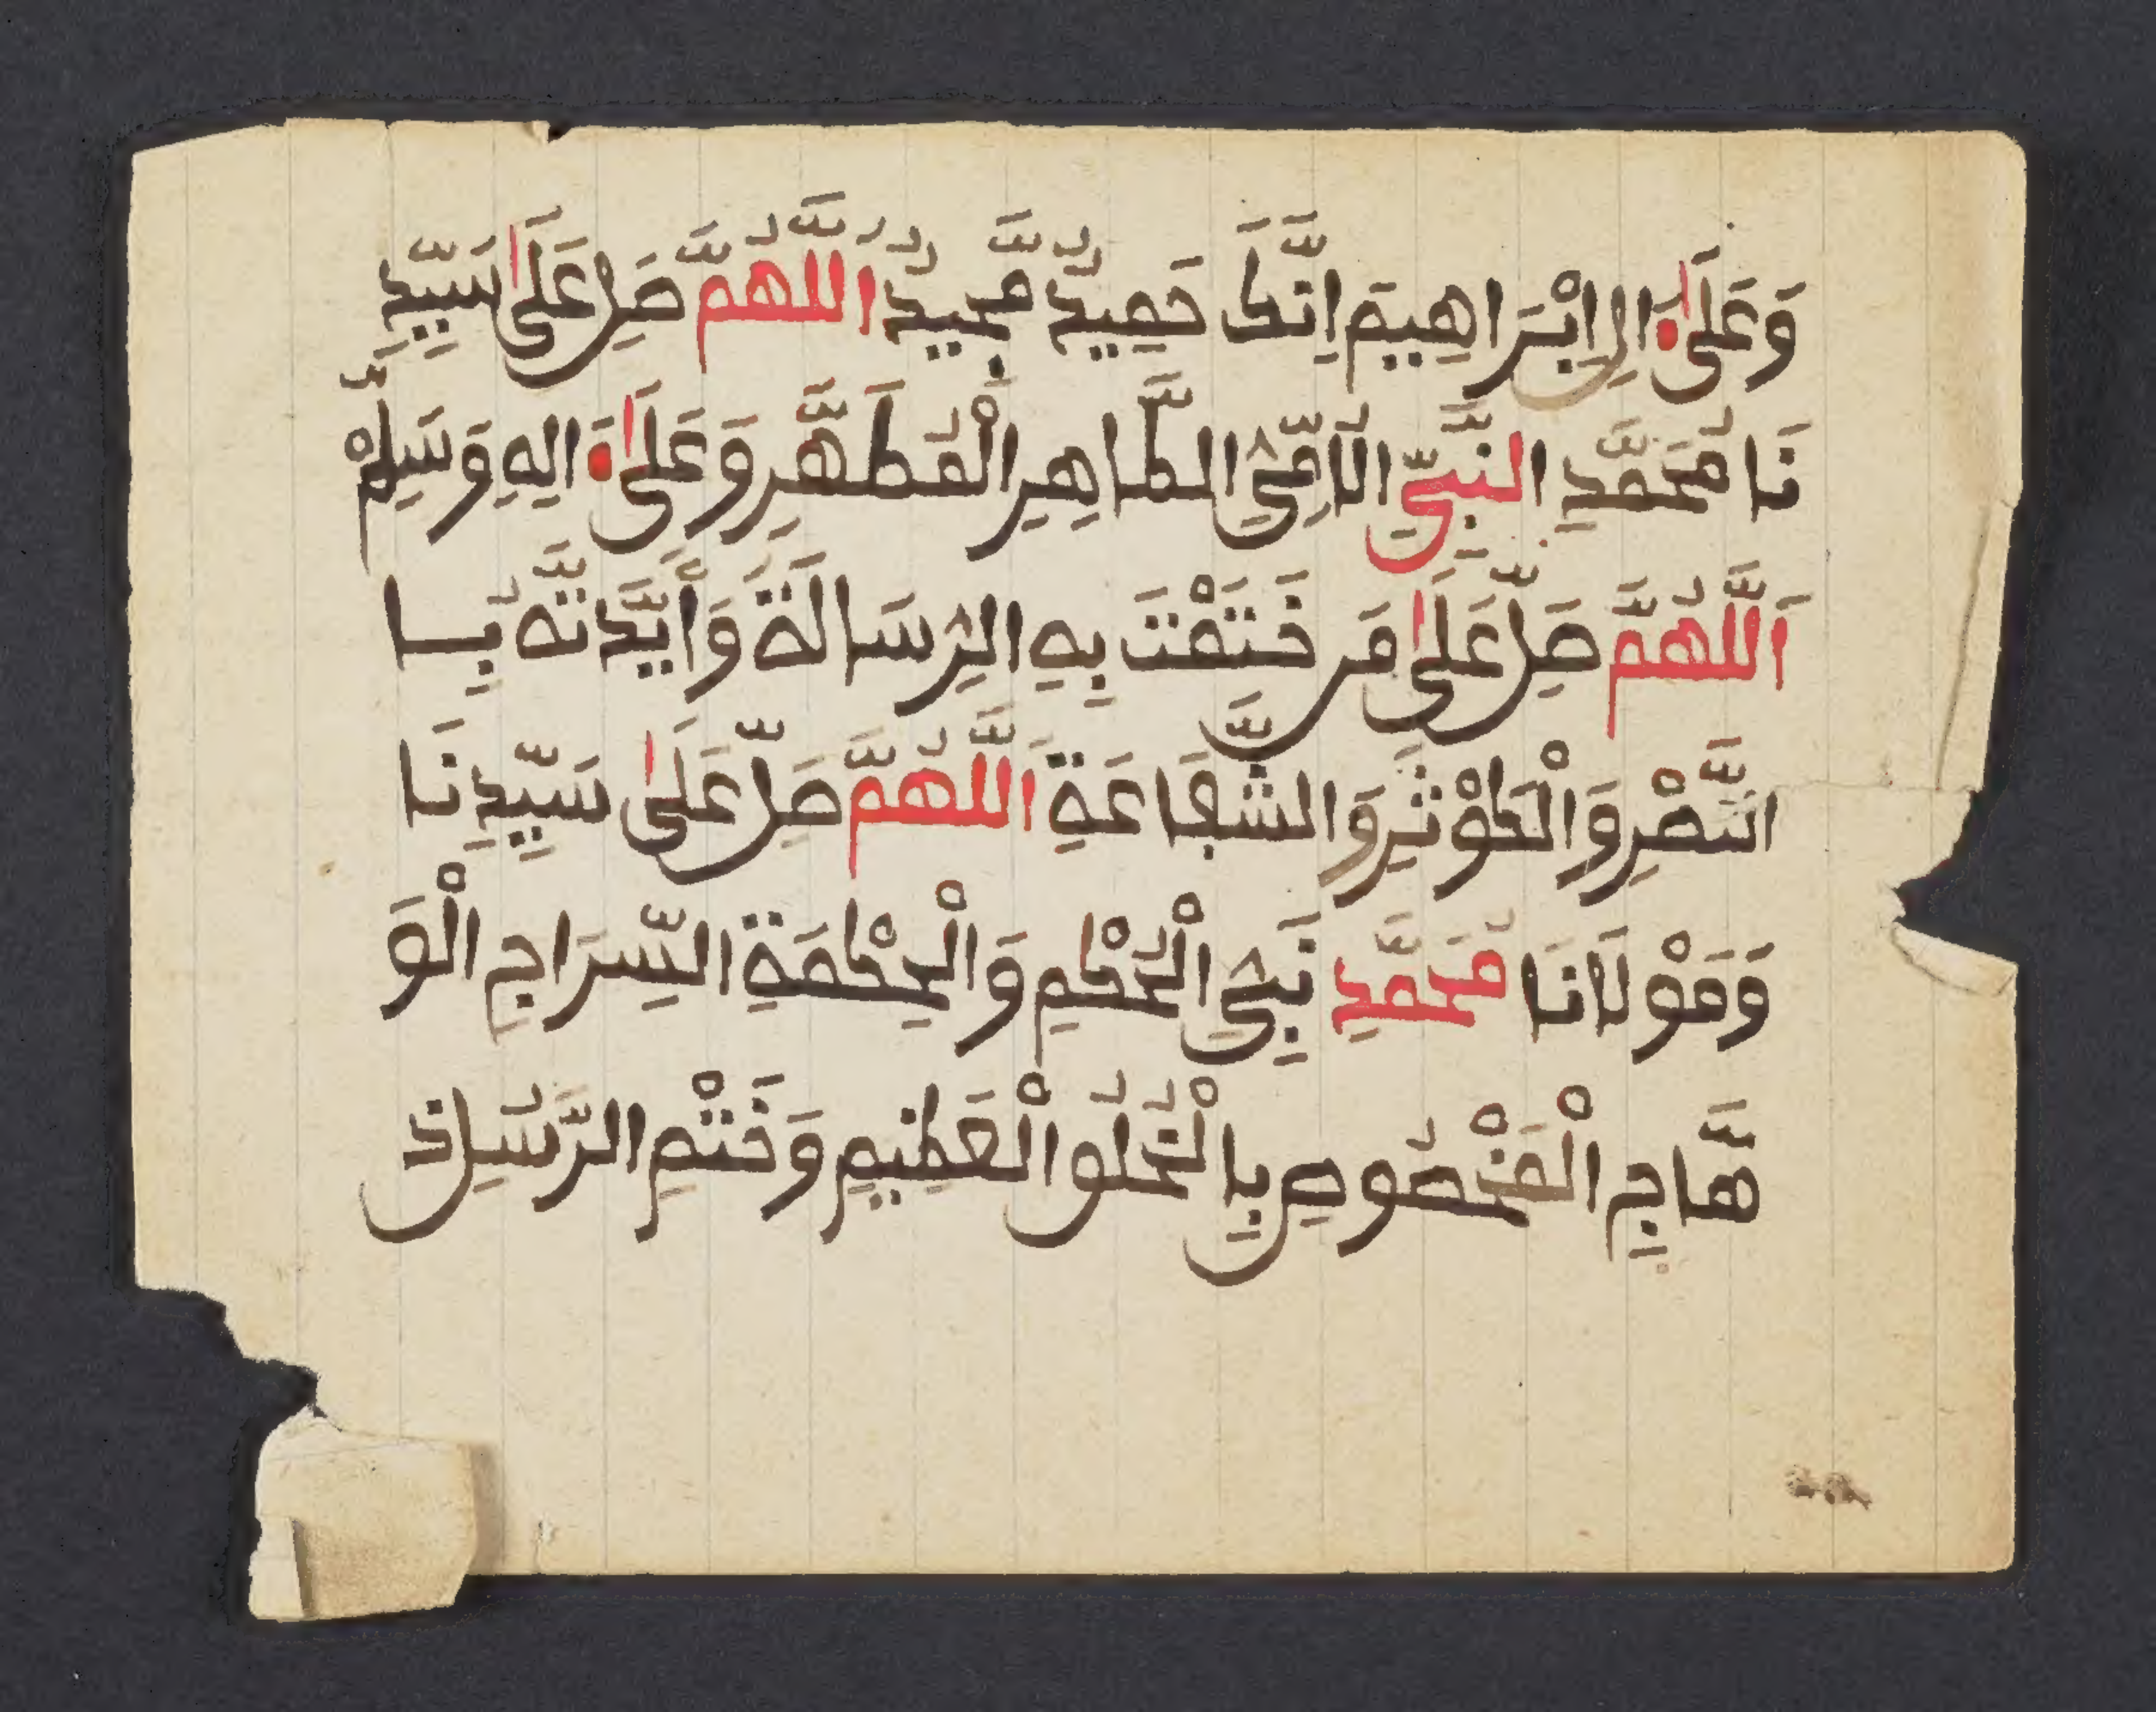 وَعَلَىٰ اَلِ اِبْرَاهِيمَ اِنَّكَ حَمِيدٌ مَّجِيدٌ اَللَّهُمَّ صَلِّ عَلَىٰ سَيِّدِ
نَا مُحَمَّدِ النَّبِيِّ الْاُمِّيِّ الطَّاهِرِ الْمُطَهَّرِ وَعَلَىٰ اَلِهِ وَسَلِّمْ
اَللَّهُمَّ صَلِّ عَلَىٰ مَن خَتَمْتَ بِهِ الرِّسَالَةَ وَأَيَّدْتَّهُ بِا
النَّصْرِ وَالْكَوْثَرِ وَالشَّفَاعَةِ اَللَّهُمَّ صَلِّ عَلَىٰ سَيِّدِنَا
وَمَوْلَانَا مُحَمَّدِ نَبِيِّ الْحُكْمِ وَالْحِكْمَةِ السِّرَاجِ الْوَ
هَّاجِ الْمَخْصُوصِ بِالْخُلُو الْعَظِيمِ وَخَتْمِ الرُّسُلِ ذ